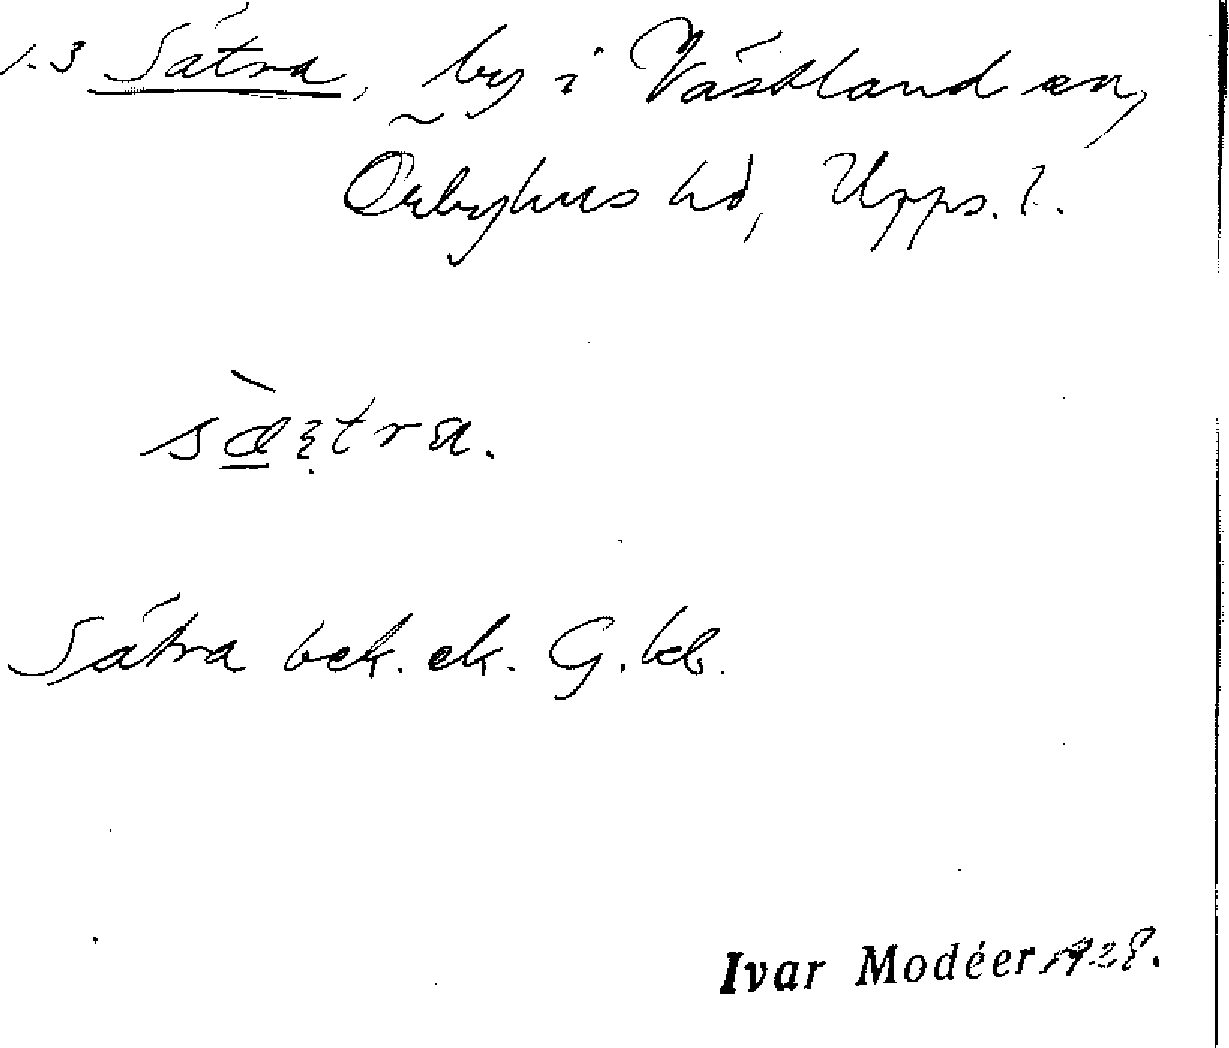 1.3 Sätra, by i Västland sn,
Örbyhus hd, Upps. l.
sætra.
Sätra bek. ek. G. kb.
Ivar Modéer 1928.